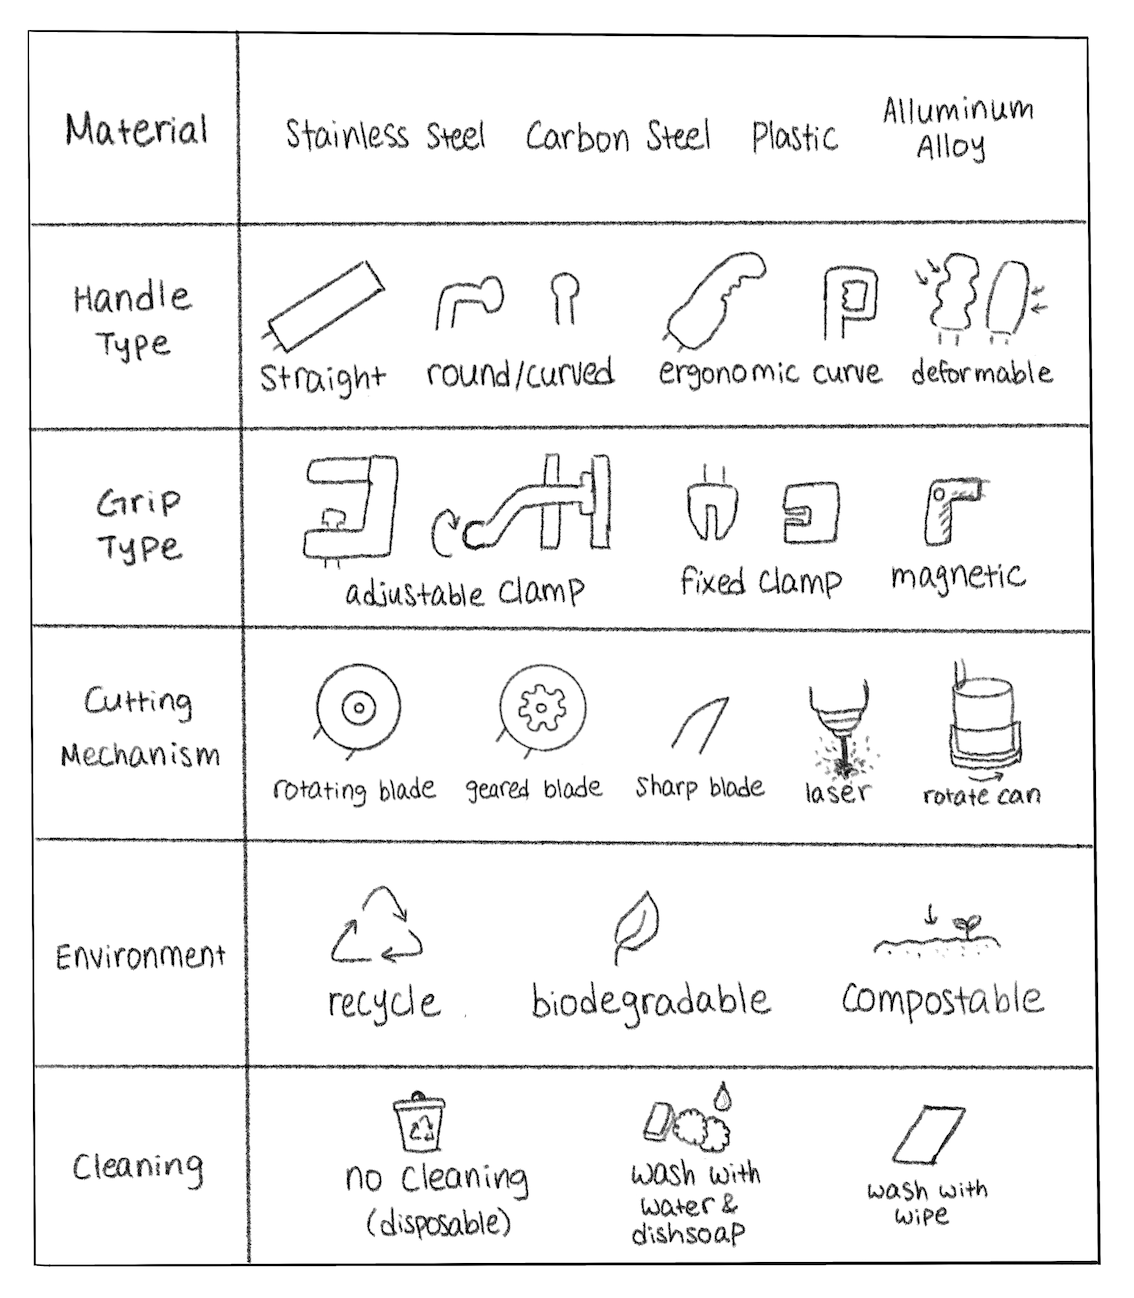 Material
Stainless Steel Carbon Steel Plastic Alluminum
Alloy
Handle
Type
straight round/curved ergonomic curve deformable
Grip
Type
adjustable clamp fixed clamp magnetic
Cutting
Mechanism
rotating blade geared blade sharp blade laser rotate can
Environment
recycle biodegradable compostable
Cleaning
no cleaning
(disposable)
wash with
water &
dishsoap
wash with
wipe